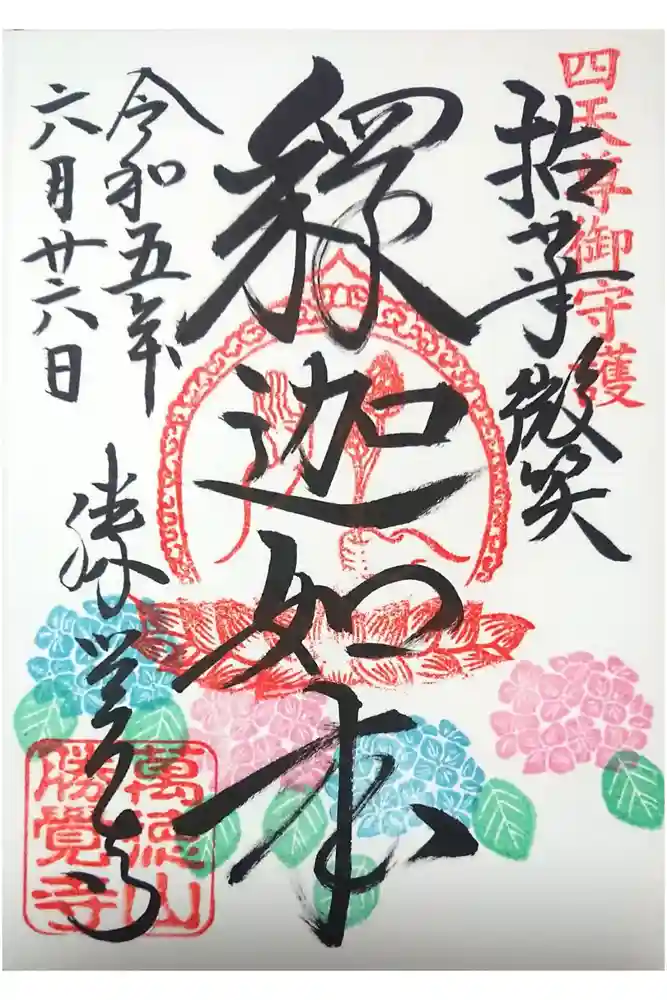 四天尊御守護
拈華微笑
釋迦如来
令和五年
六月廿六日
勝覺寺
萬徳山
勝覺寺